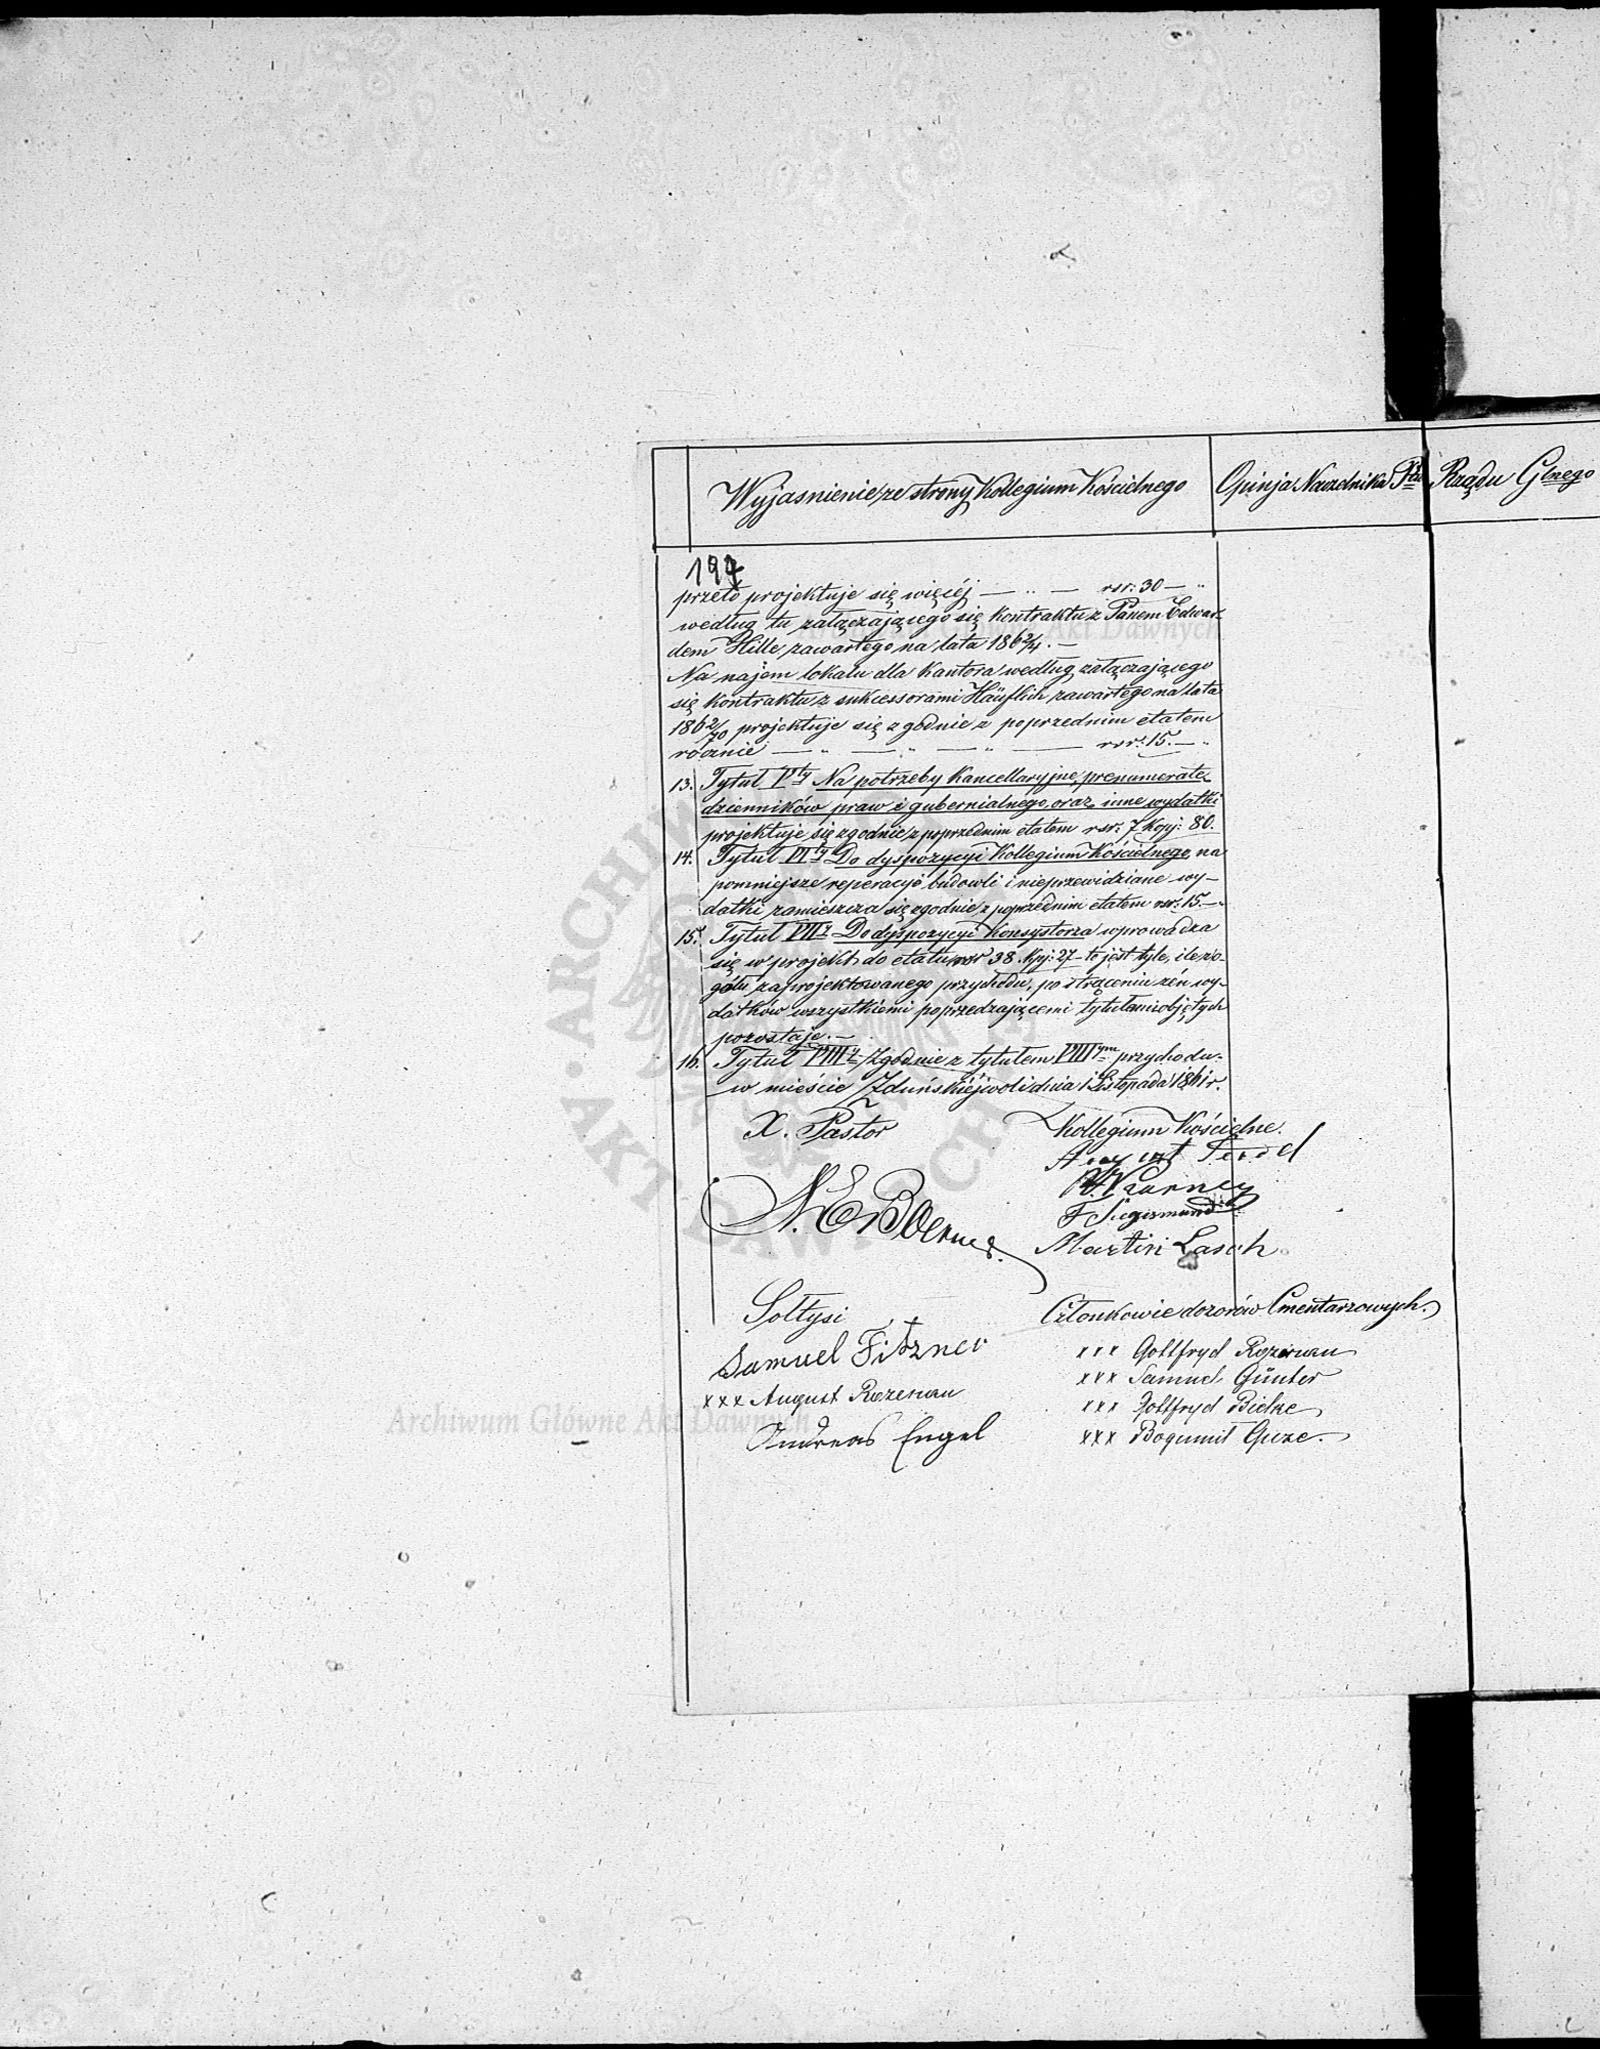 Wyjasnienie ze strony Kollegium Kościelnego
Opinja Naczelnika Ptu
Rządu Glnego
197
przeto projektuje się więcéj — „ — rsr: 30 — „
według tu załączającego się kontraktu z Panem Edwar-
dem Hille zawartego na lata 1862/4. —
Na najem lokalu dla Kantora według załączającego
się kontraktu z sukcessorami Häuflich zawartego na lata
1862/70 projektuje się zgodnie z poprzednim etatem
rocznie — „ — „ — „ — rsr: 15. — „
13. Tytuł Vty Na potrzeby Kancellaryjne, prenumeratę
dzienników praw i gubernialnego, oraz inne wydatki
projektuje się zgodnie z poprzednim etatem rsr: 7 Kopj: 80.
14. Tytuł VIty Do dyspozycyi Kollegium Kościelnego, na
pomniejsze reperacye budowli i nieprzewidziane wy-
datki zamieszcza się zgodnie z poprzednim etatem rsr: 15. — „
15. Tytuł VIIy Do dyspozycyi Konsystorza wprowadza
się w projekt do etatu rsr 38. Kpj: 27 – to jest tyle, ile z o-
gółu zaprojektowanego przychodu, po strąceniu zeń wy-
datków wszystkiemi poprzedzającemi tytułami objętych
pozostaje. —
16. Tytuł VIIIy Zgodnie z tytułem VIIIym przychodu. –
w mieście Zduńskiéjwoli dnia 1 Listopada 1861 r.
X. Pastor
Kollegium Kościelne.
August
F Sigismund
Martin Lasch
N. E. Boerner.
Sołtysi
Członkowie dozorów Cmentarzowych.
Samuel Fitzner
xxx Gottfryd
xxx Samuel Günter
xxx August Rozenau
xxx Gottfryd Bielze
Andreas Engel
xxx Bogumił Guze.
Archiwum Główne Akt Dawnych
Archiwum Główne Akt Dawnych
ARCHIWUM GŁÓWNE · AKT DAWNYCH ·